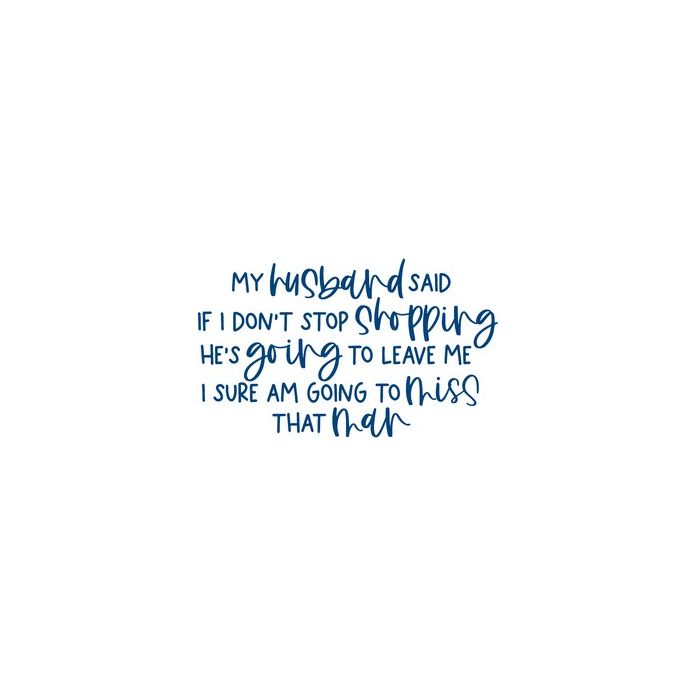 MY husband SAID
IF I DON'T STOP shopping
HE'S going TO LEAVE ME
I SURE AM GOING TO miss
THAT man